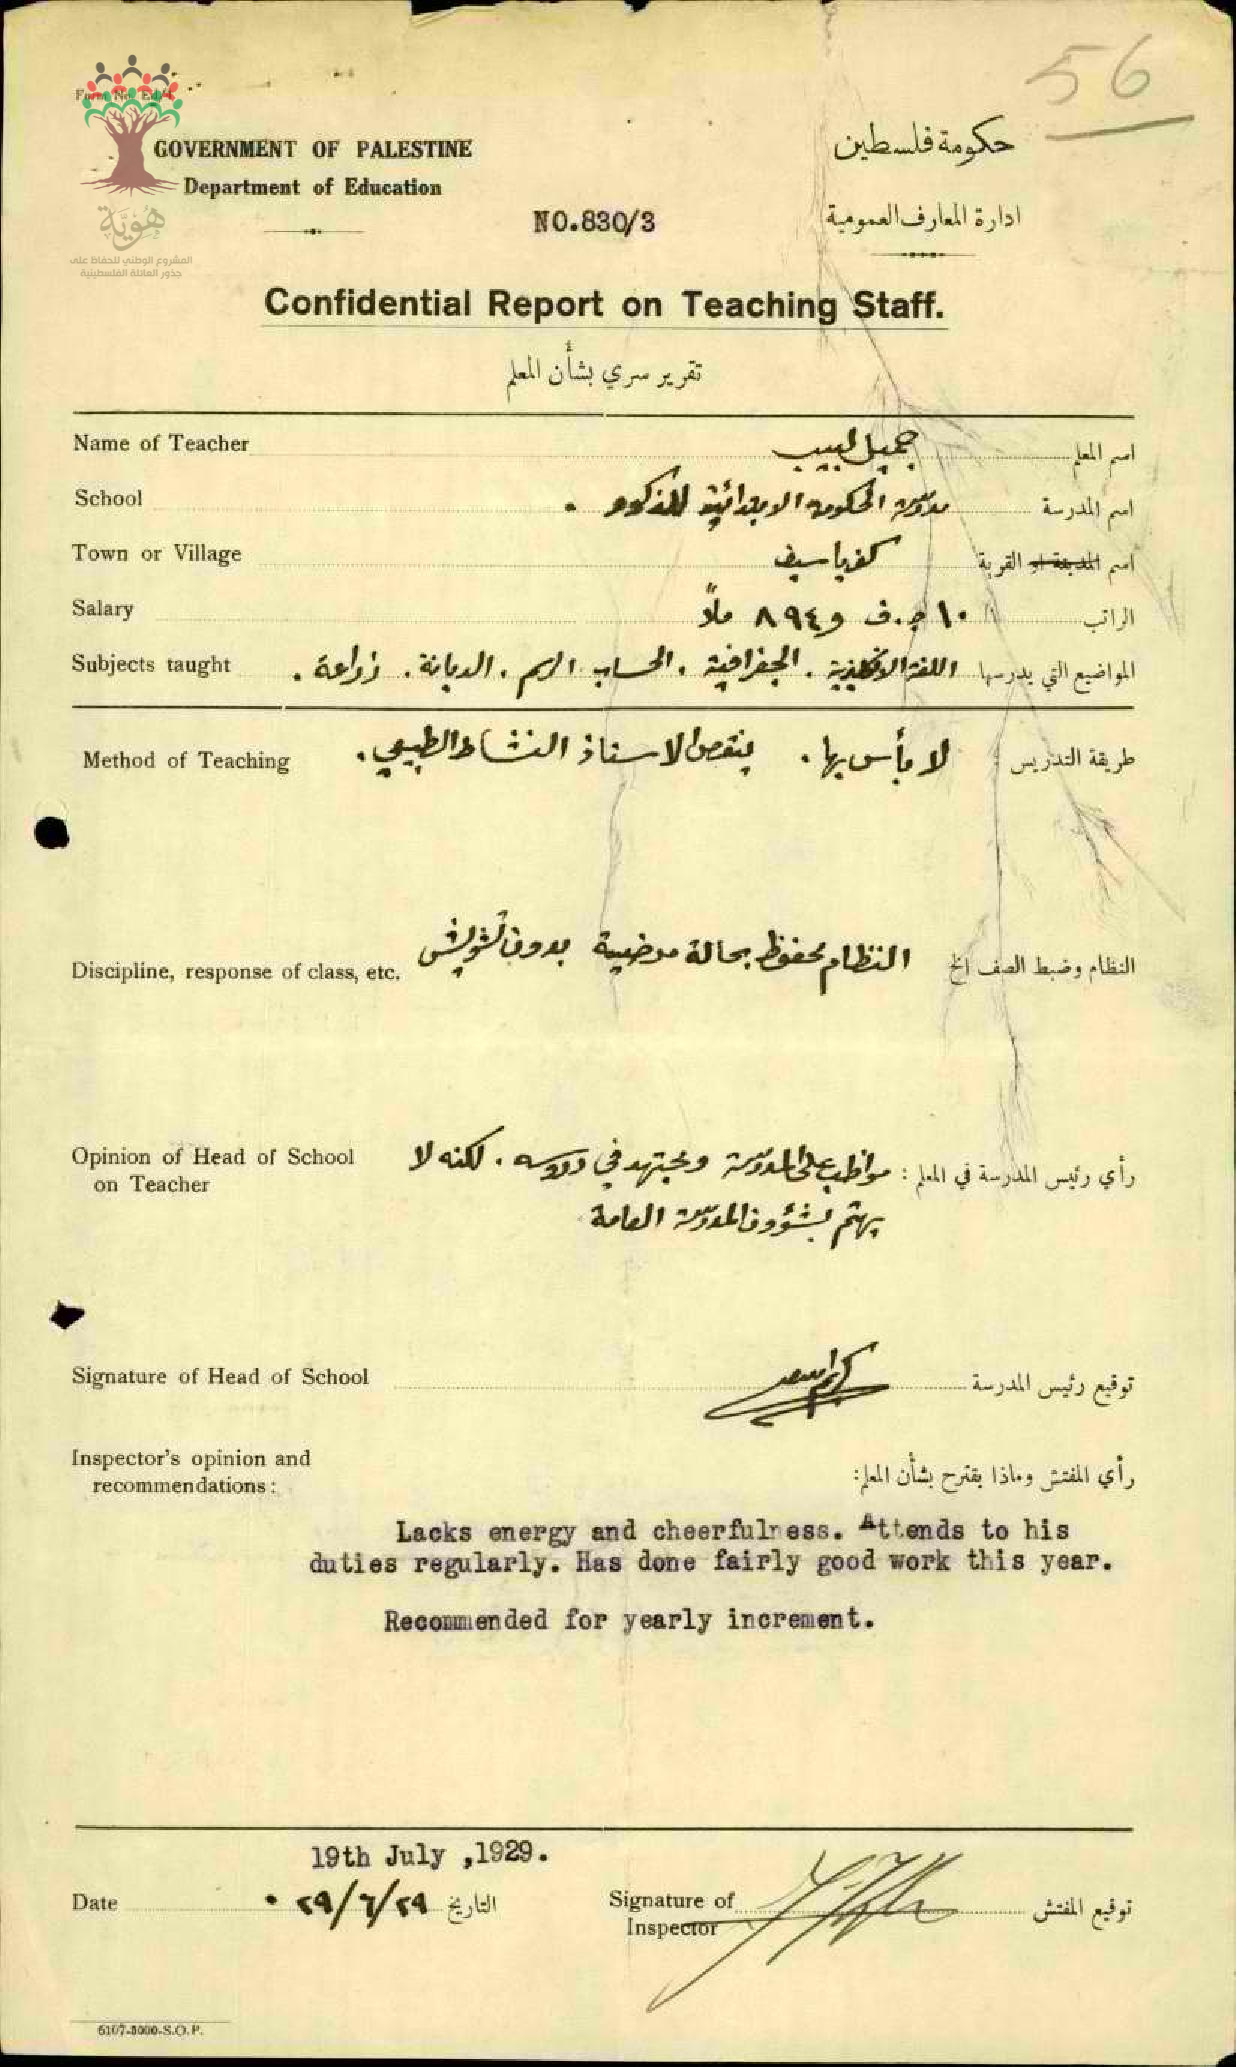 56
Form No. Ed/4
GOVERNMENT OF PALESTINE
Department of Education
حكومة فلسطين
ادارة المعارف العمومية
NO.830/3
هُوِيَّة
المشروع الوطني للحفاظ على
جذور العائلة الفلسطينية
Confidential Report on Teaching Staff.
تقرير سري بشأن المعلم
Name of Teacher جميل لبيب اسم المعلم
School مدرسة الحكومة الابتدائية للذكور . اسم المدرسة
Town or Village كفر ياسيف اسم المدينة او القرية
Salary ١٠ ج.ف و ٨٩٤ ملاً الراتب
Subjects taught اللغة الانكليزية . الجغرافية . الحساب . الرسم . الديانة . زراعة . المواضيع التي يدرسها
Method of Teaching لا بأس بها . ينقص الاستاذ النشاط الطبيعي . طريقة التدريس :
Discipline, response of class, etc. النظام محفوظ بحالة مرضية بدون تشويش النظام وضبط الصف الخ
Opinion of Head of School on Teacher رأي رئيس المدرسة في المعلم : مواظب على المدرسة ومجتهد في دروسه . لكنه لا
يهتم بشؤون المدرسة العامة
Signature of Head of School توقيع رئيس المدرسة
Inspector's opinion and
recommendations:
رأي المفتش وماذا يقترح بشأن المعلم:
Lacks energy and cheerfulness. Attends to his
duties regularly. Has done fairly good work this year.
Recommended for yearly increment.
19th July ,1929.
Date ٢٩/٦/٢٩ . التاريخ
Signature of
Inspector
توقيع المفتش
6107-3000-S.O.P.